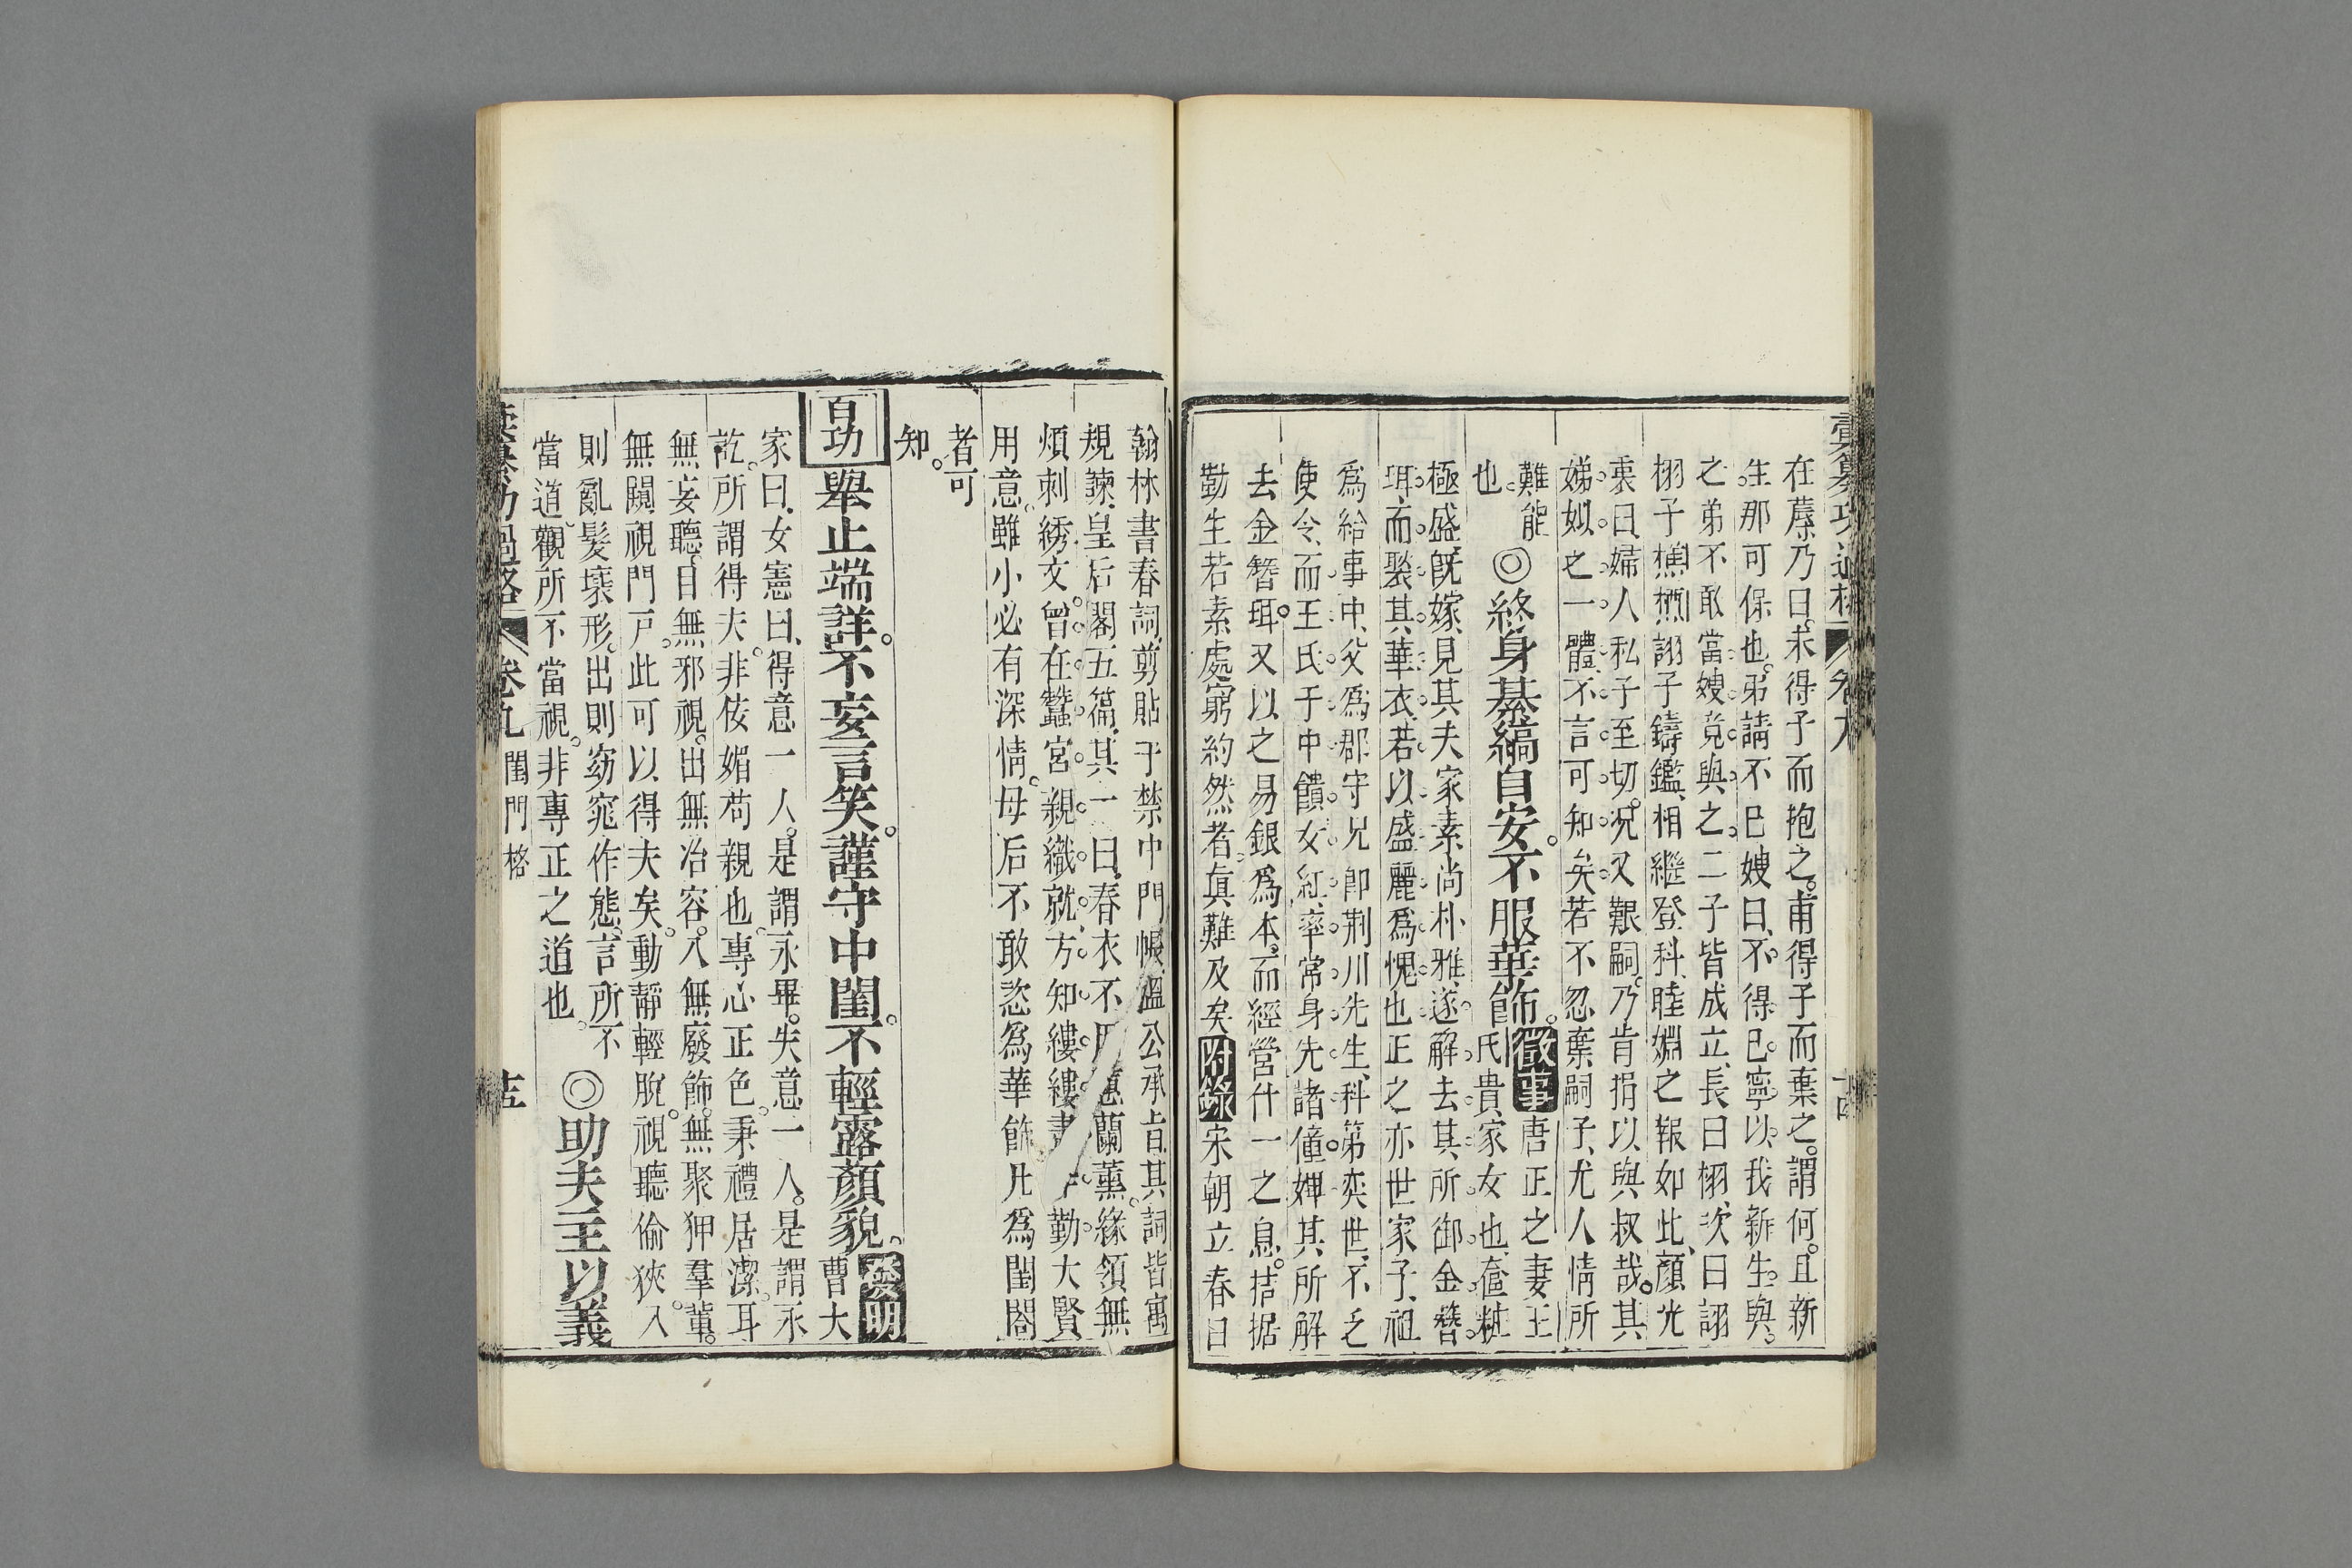 彙纂功過格 卷九 十四
在蓐乃曰未得子而抱之甫得子而棄之謂何且新
生那可保也弟請不已嫂曰不得已寧以我新生與
之弟不敢當嫂竟與之二子皆成立長曰栩次曰詡
栩子樵㷊詡子鑄鑑相繼登科睦婣之報如此顏光
衷曰婦人私子至切況又艱嗣乃肯捐以與叔哉其
娣姒之一體不言可知矣若不忍棄嗣子尤人情所
難能
也
◎終身綦縞自安不服華飾 徵事 唐正之妻王
氏貴家女也奩粧
極盛既嫁見其夫家素尚朴雅遂解去其所御金簪
珥而襲其華衣若以盛麗爲愧也正之亦世家子祖
爲給事中父爲郡守兄卽荆川先生科第奕世不乏
使令而王氏于中饋女紅率常身先諸僮婢其所解
去金簪珥又以之易銀爲本而經營什一之息拮据
勤生若素處窮約然者眞難及矣 附錄 宋朝立春日
翰林書春詞剪貼于禁中門帳溫公承旨其詞皆寓
規諫皇后閣五篇其一曰春衣不用蕙蘭薰緣領無
煩刺綉文曾在蠶宮親織就方知縷縷勤大賢
用意雖小必有深情母后不敢恣爲華飾凡爲閨閤
者可
知
百功 舉止端詳不妄言笑謹守中閨不輕露顏貌 發明
曹大
家曰女憲曰得意一人是謂永畢失意一人是謂永
訖所謂得夫非佞媚苟親也專心正色秉禮居潔耳
無妄聽目無邪視出無冶容入無廢飾無聚狎羣輩
無闚視門戶此可以得夫矣動靜輕脫視聽偷狹入
則亂髮壞形出則窈窕作態言所不
當道觀所不當視非專正之道也
◎助夫主以義
彙纂功過格 卷九 閨門格 十五